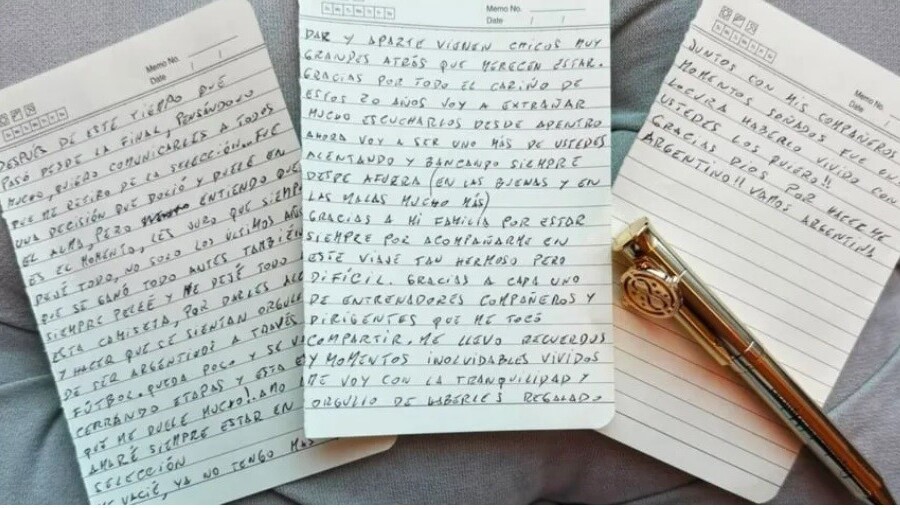 Memo No.
Date / /
DESPUÉS DE ESTE TIEMPO QUE
PASÓ DESDE LA FINAL, PENSÁNDOLO
MUCHO, QUIERO COMUNICARLES A TODOS
QUE ME RETIRO DE LA SELECCIÓN. FUE
UNA DECISIÓN QUE DOLIÓ Y DUELE EN
EL ALMA, PERO ENTIENDO QUE
ES EL MOMENTO, LES JURO QUE SIEMPRE
DEJÉ TODO, NO SOLO LOS ÚLTIMOS AÑOS
QUE SE GANÓ TODO ANTES TAMBIÉN
SIEMPRE PELEÉ Y ME DEJÉ TODO
ESTA CAMISETA, POR DARLES
Y HACER QUE SE SIENTAN
DE SER ARGENTINOS A TRAVÉS
FÚTBOL. QUEDA POCO Y SE
CERRANDO ETAPAS Y ESTA
QUE ME DUELE MUCHO!! AMO
AMARÉ SIEMPRE ESTAR EN
SELECCIÓN
ME VACIÉ, YA NO TENGO MÁS
Memo No.
Date / /
DAR Y APARTE VIENEN CHICOS MUY
GRANDES ATRÁS QUE MERECEN ESTAR.
GRACIAS POR TODO EL CARIÑO DE
ESTOS 20 AÑOS VOY A EXTRAÑAR
MUCHO ESCUCHARLOS DESDE ADENTRO
AHORA VOY A SER UNO MÁS DE USTEDES
ALENTANDO Y BANCANDO SIEMPRE
DESDE AFUERA (EN LAS BUENAS Y EN
LAS MALAS MUCHO MÁS)
GRACIAS A MI FAMILIA POR ESTAR
SIEMPRE POR ACOMPAÑARME EN
ESTE VIAJE TAN HERMOSO PERO
DIFÍCIL. GRACIAS A CADA UNO
DE ENTRENADORES COMPAÑEROS Y
DIRIGENTES QUE ME TOCÓ
COMPARTIR, ME LLEVO RECUERDOS
Y MOMENTOS INOLVIDABLES VIVIDOS
ME VOY CON LA TRANQUILIDAD Y
ORGULLO DE HABERLES REGALADO
Memo No.
Date /
JUNTOS CON MIS COMPAÑEROS
MOMENTOS SOÑADOS. FUE UNA
LOCURA HABERLO VIVIDO CON
USTEDES LOS QUIERO!!
GRACIAS DIOS POR HACERME
ARGENTINO!! VAMOS ARGENTINA